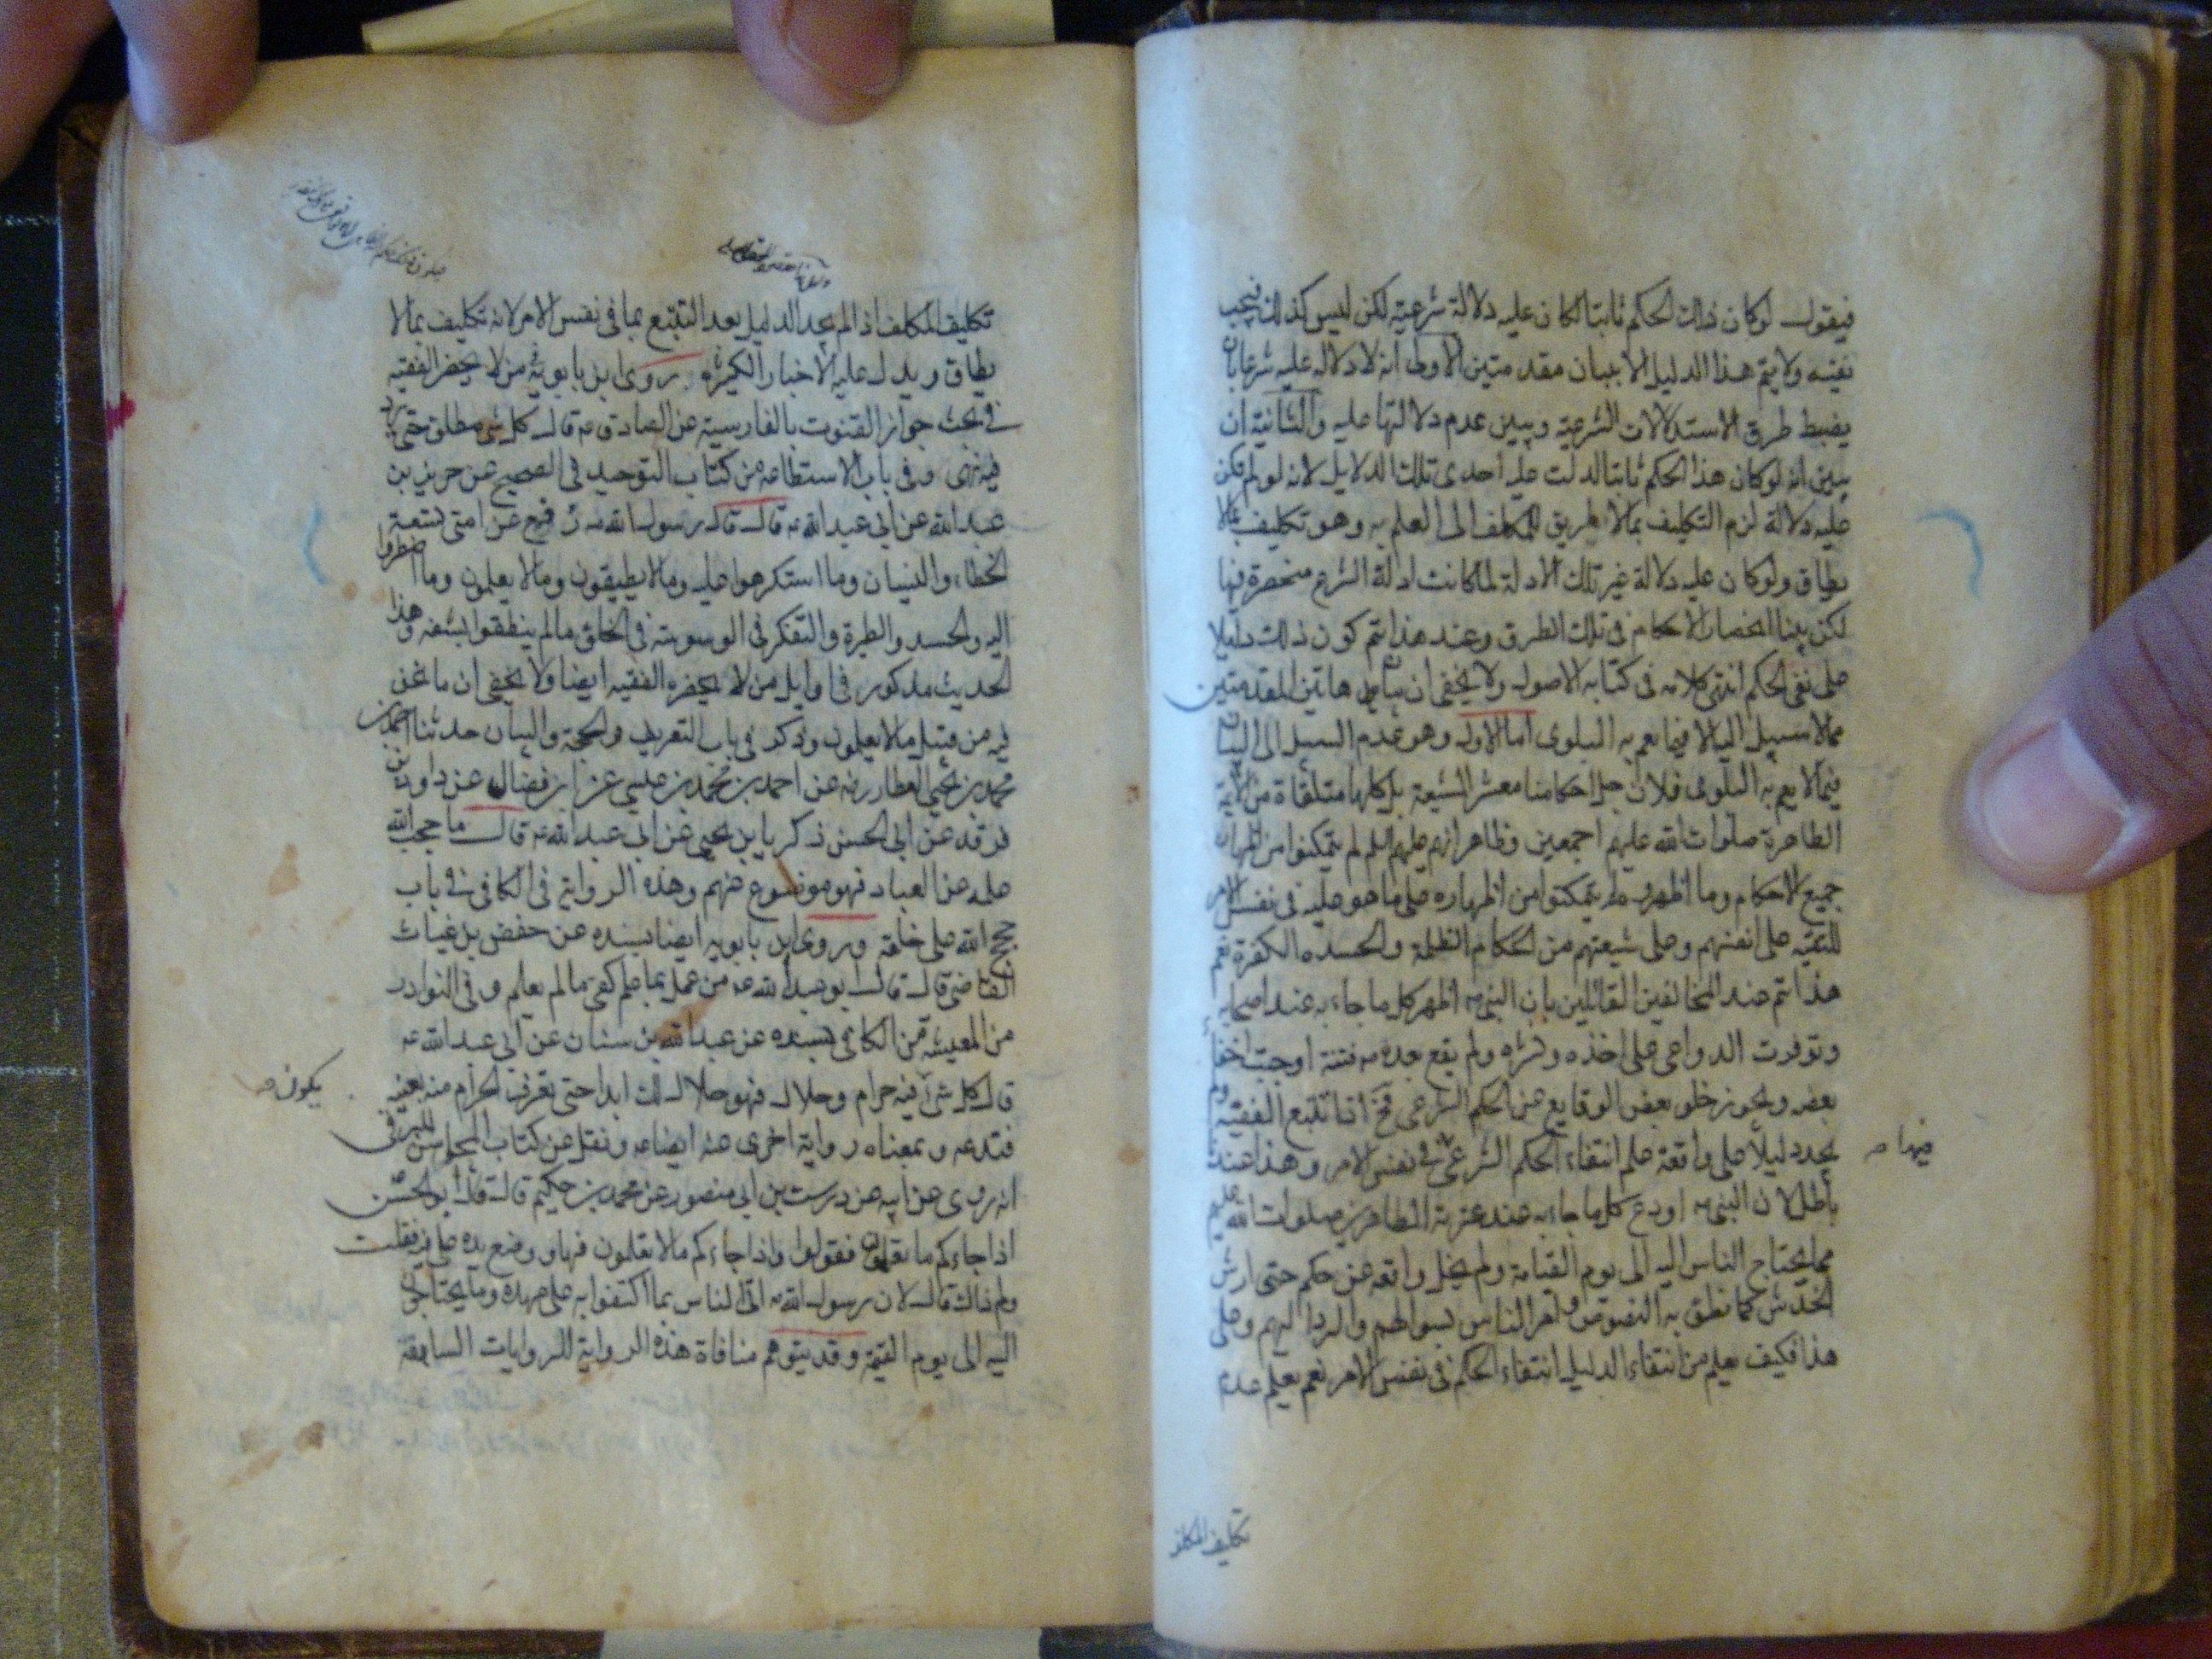 فيقول لو كان ذلك الحكم ثابتا لكان عليه دلالة شرعية لكن ليس كذلك فيجب
نفيه ولا يتم هذا الدليل الا ببيان مقدمتين الاولى انه لا دلالة عليه شرعا بان
يضبط طرق الاستدلالات الشرعية ويبين عدم دلالتها عليه والثانية ان
يبين انه لو كان هذا الحكم ثابتا لدلت عليه احدى تلك الدلايل لانه لو لم يكن
عليه دلالة لزم التكليف بما لا طريق للمكلف الى العلم به وهو تكليف بما لا
يطاق ولو كان عليه دلالة غير تلك الادلة لما كانت ادلة الشرع منحصرة فيها
لكن بينا انحصار الاحكام في تلك الطرق وعند هذا يتم كون ذلك دليلا
على نفي الحكم انتهى كلامه في كتابه الاصول ولا يخفى ان بيان هاتين المقدمتين
مما لا سبيل اليه الا فيما يعم به البلوى اما الاول وهو عدم السبيل الى البيان
فيما لا يعم به البلوى فلان جل احكامنا معشر الشيعة بل كلها متلقاة من الائمة
الطاهرة صلوات الله عليهم اجمعين وظاهر انهم عليهم السلم لم يتمكنوا من اظهار
جميع الاحكام وما اظهروه لم يتمكنوا من اظهاره على ما هو عليه في نفس الامر
للتقية على انفسهم وعلى شيعتهم من الحكام الظلمة والحسدة الكفرة نعم
هذا يتم عند المخالفين القائلين بان النبي ص اظهر كل ما جاء به عند اصحابه
وتوفرت الدواعي على اخذه ونشره ولم يقع بعده ص فتنة اوجبت اخفاء
بعضه ويجوز خلو بعض الوقايع عن الحكم الشرعي فح اذا تتبع الفقيه ولم
يجد دليلا على واقعة علم انتفاء الحكم الشرعي في نفس الامر وهذا عندنا
فيها ص
باطل لان النبي ص اودع كل ما جاء به عند عترته الطاهرين صلوات الله عليهم
مما يحتاج الناس اليه الى يوم القيامة ولم يخل واقعة عن حكم حتى ارش
الخدش كما نطق به النصوص وامر الناس بسؤالهم والرد اليهم وعلى
هذا فكيف يعلم من انتفاء الدليل انتفاء الحكم في نفس الامر نعم يعلم عدم
تكليف المكلف
تكليف المكلف اذا لم يجد الدليل بعد التتبع بما في نفس الامر لانه تكليف بما لا
يطاق ويدل عليه الاخبار الكثيرة روى ابن بابويه في من لا يحضر الفقيه
في بحث جواز القنوت بالفارسية عن الصادق ع قال كل شيء مطلق حتى يرد
فيه نهى وفي باب الاستطاعة من كتاب التوحيد في الصحيح عن حريز بن
عبد الله عن ابي عبد الله ع قال قال رسول الله ص رفع عن امتي تسعة
الخطاء والنسيان وما استكرهوا عليه وما لا يطيقون وما لا يعلمون وما اضطروا
اليه والحسد والطيرة والتفكر في الوسوسة في الخلق ما لم ينطقوا بشفة وهذا
الحديث مذكور في اوايل من لا يحضره الفقيه ايضا ولا يخفى ان ما نحن
فيه من قبيل ما لا يعلمون وذكر في باب التعريف والحجة والبيان حدثنا احمد بن
محمد بن يحيى العطار رضه عن احمد بن محمد بن عيسى عن ابن فضال عن داود بن
فرقد عن ابي الحسن زكريا بن يحيى عن ابي عبد الله ع قال ما حجب الله
علمه عن العباد فهو موضوع عنهم وهذه الرواية في الكافي في باب
حجج الله على خلقه وروى ابن بابويه ايضا بسنده عن حفص بن غياث
القاضي قال قال ابو عبد الله ع من عمل بما علم كفى ما لم يعلم وفي النوادر
من المعيشة من الكافي بسنده عن عبد الله بن سنان عن ابي عبد الله ع
يكون ص
قال كل شيء فيه حرام وحلال فهو حلال لك ابدا حتى تعرف الحرام منه بعينه
فتدعه وبمعناه رواية اخرى عنه ايضا ع ونقل عن كتاب المحاسن للبرقي
انه روى عن ابيه عن درست بن ابي منصور عن محمد بن حكيم قال قال ابو الحسن
اذا جاءكم ما تعلمون فقولوا واذا جاءكم ما لا تعلمون فها ووضع يده على فيه فقلت
ولم ذاك قال لان رسول الله ص اتى الناس بما اكتفوا به على عهده وما يحتاجون
اليه الى يوم القيمة وقد يتوهم منافاة هذه الرواية للروايات السابقة